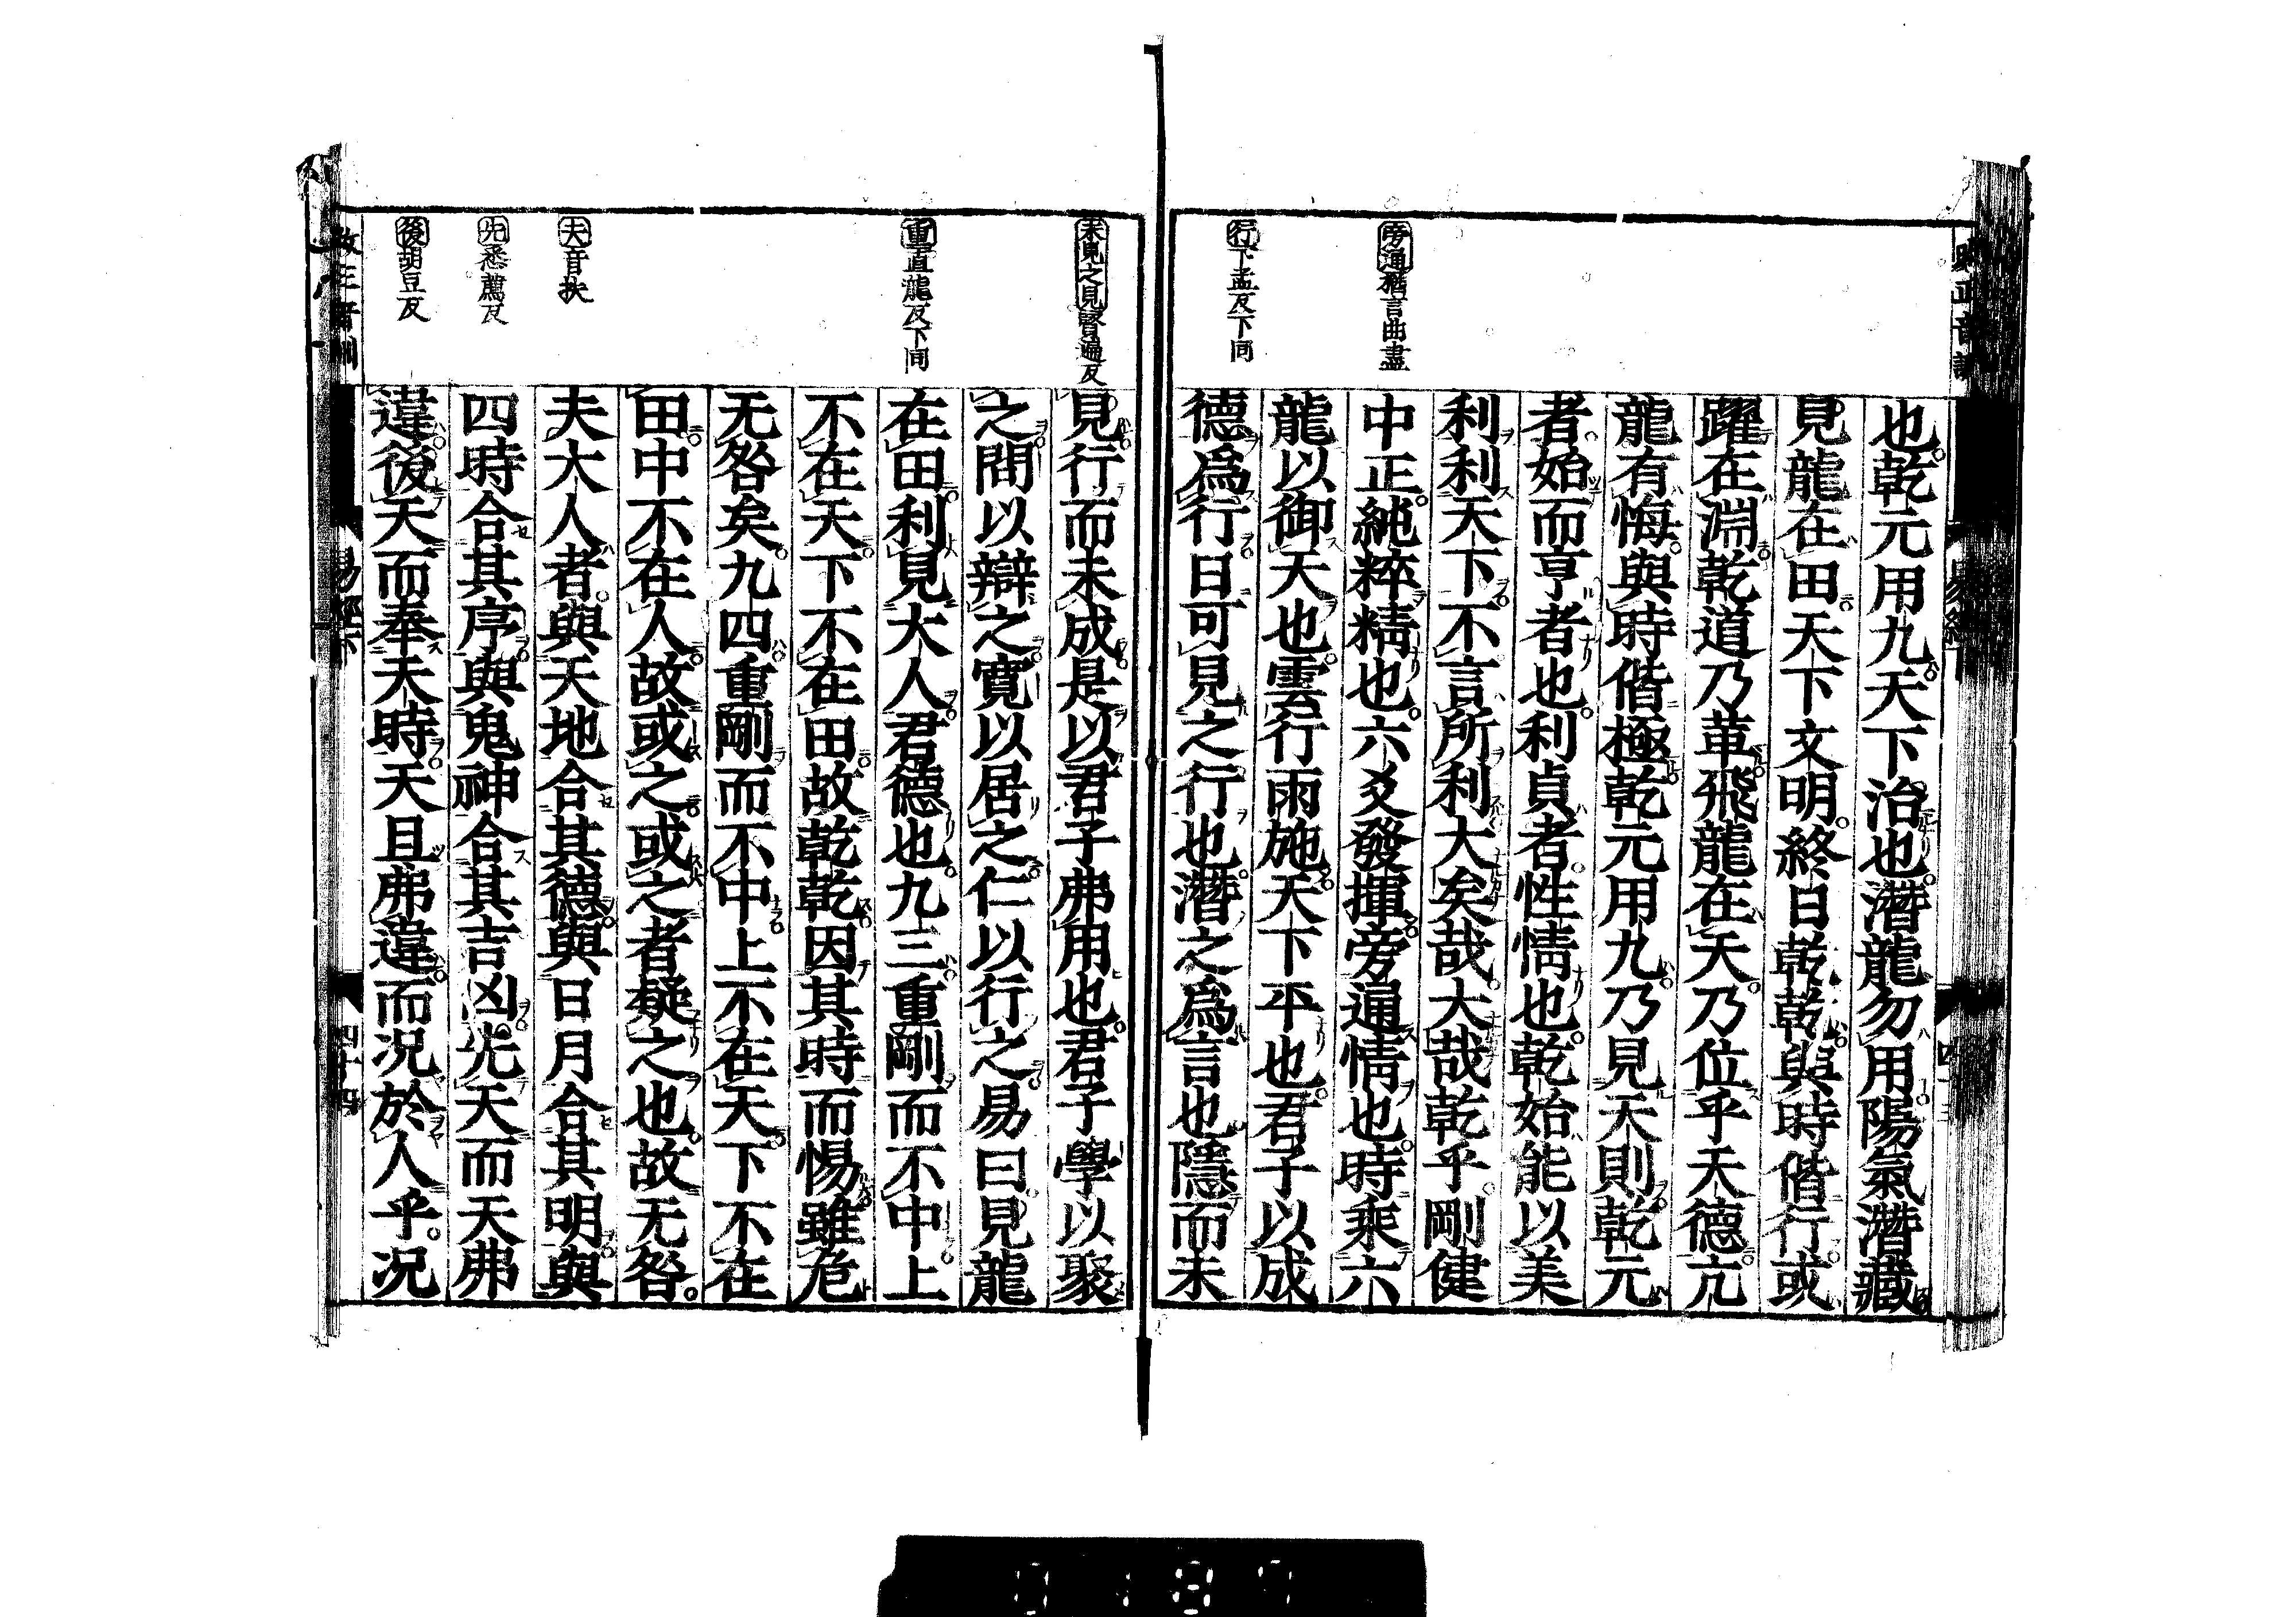 旁通猶言曲盡
行下孟反下同
也乾元用九天下治也潛龍勿用陽氣潛藏
見龍在田天下文明終日乾乾與時偕行或
躍在淵乾道乃革飛龍在天乃位乎天德亢
龍有悔與時偕極乾元用九乃見天則乾元
者始而亨者也利貞者性情也乾始能以美
利利天下不言所利大矣哉大哉乾乎剛健
中正純粹精也六爻發揮旁通情也時乘六
龍以御天也雲行雨施天下平也君子以成
德爲行日可見之行也潛之爲言也隱而未
未見之見賢遍反
重直龍反下同
夫音扶
先悉薦反
後胡豆反
見行而未成是以君子弗用也君子學以聚
之問以辯之寬以居之仁以行之易曰見龍
在田利見大人君德也九三重剛而不中上
不在天下不在田故乾乾因其時而惕雖危
无咎矣九四重剛而不中上不在天下不在
田中不在人故或之或之者疑之也故无咎
夫大人者與天地合其德與日月合其明與
四時合其序與鬼神合其吉凶先天而天弗
違後天而奉天時天且弗違而况於人乎况
易經下
四十四